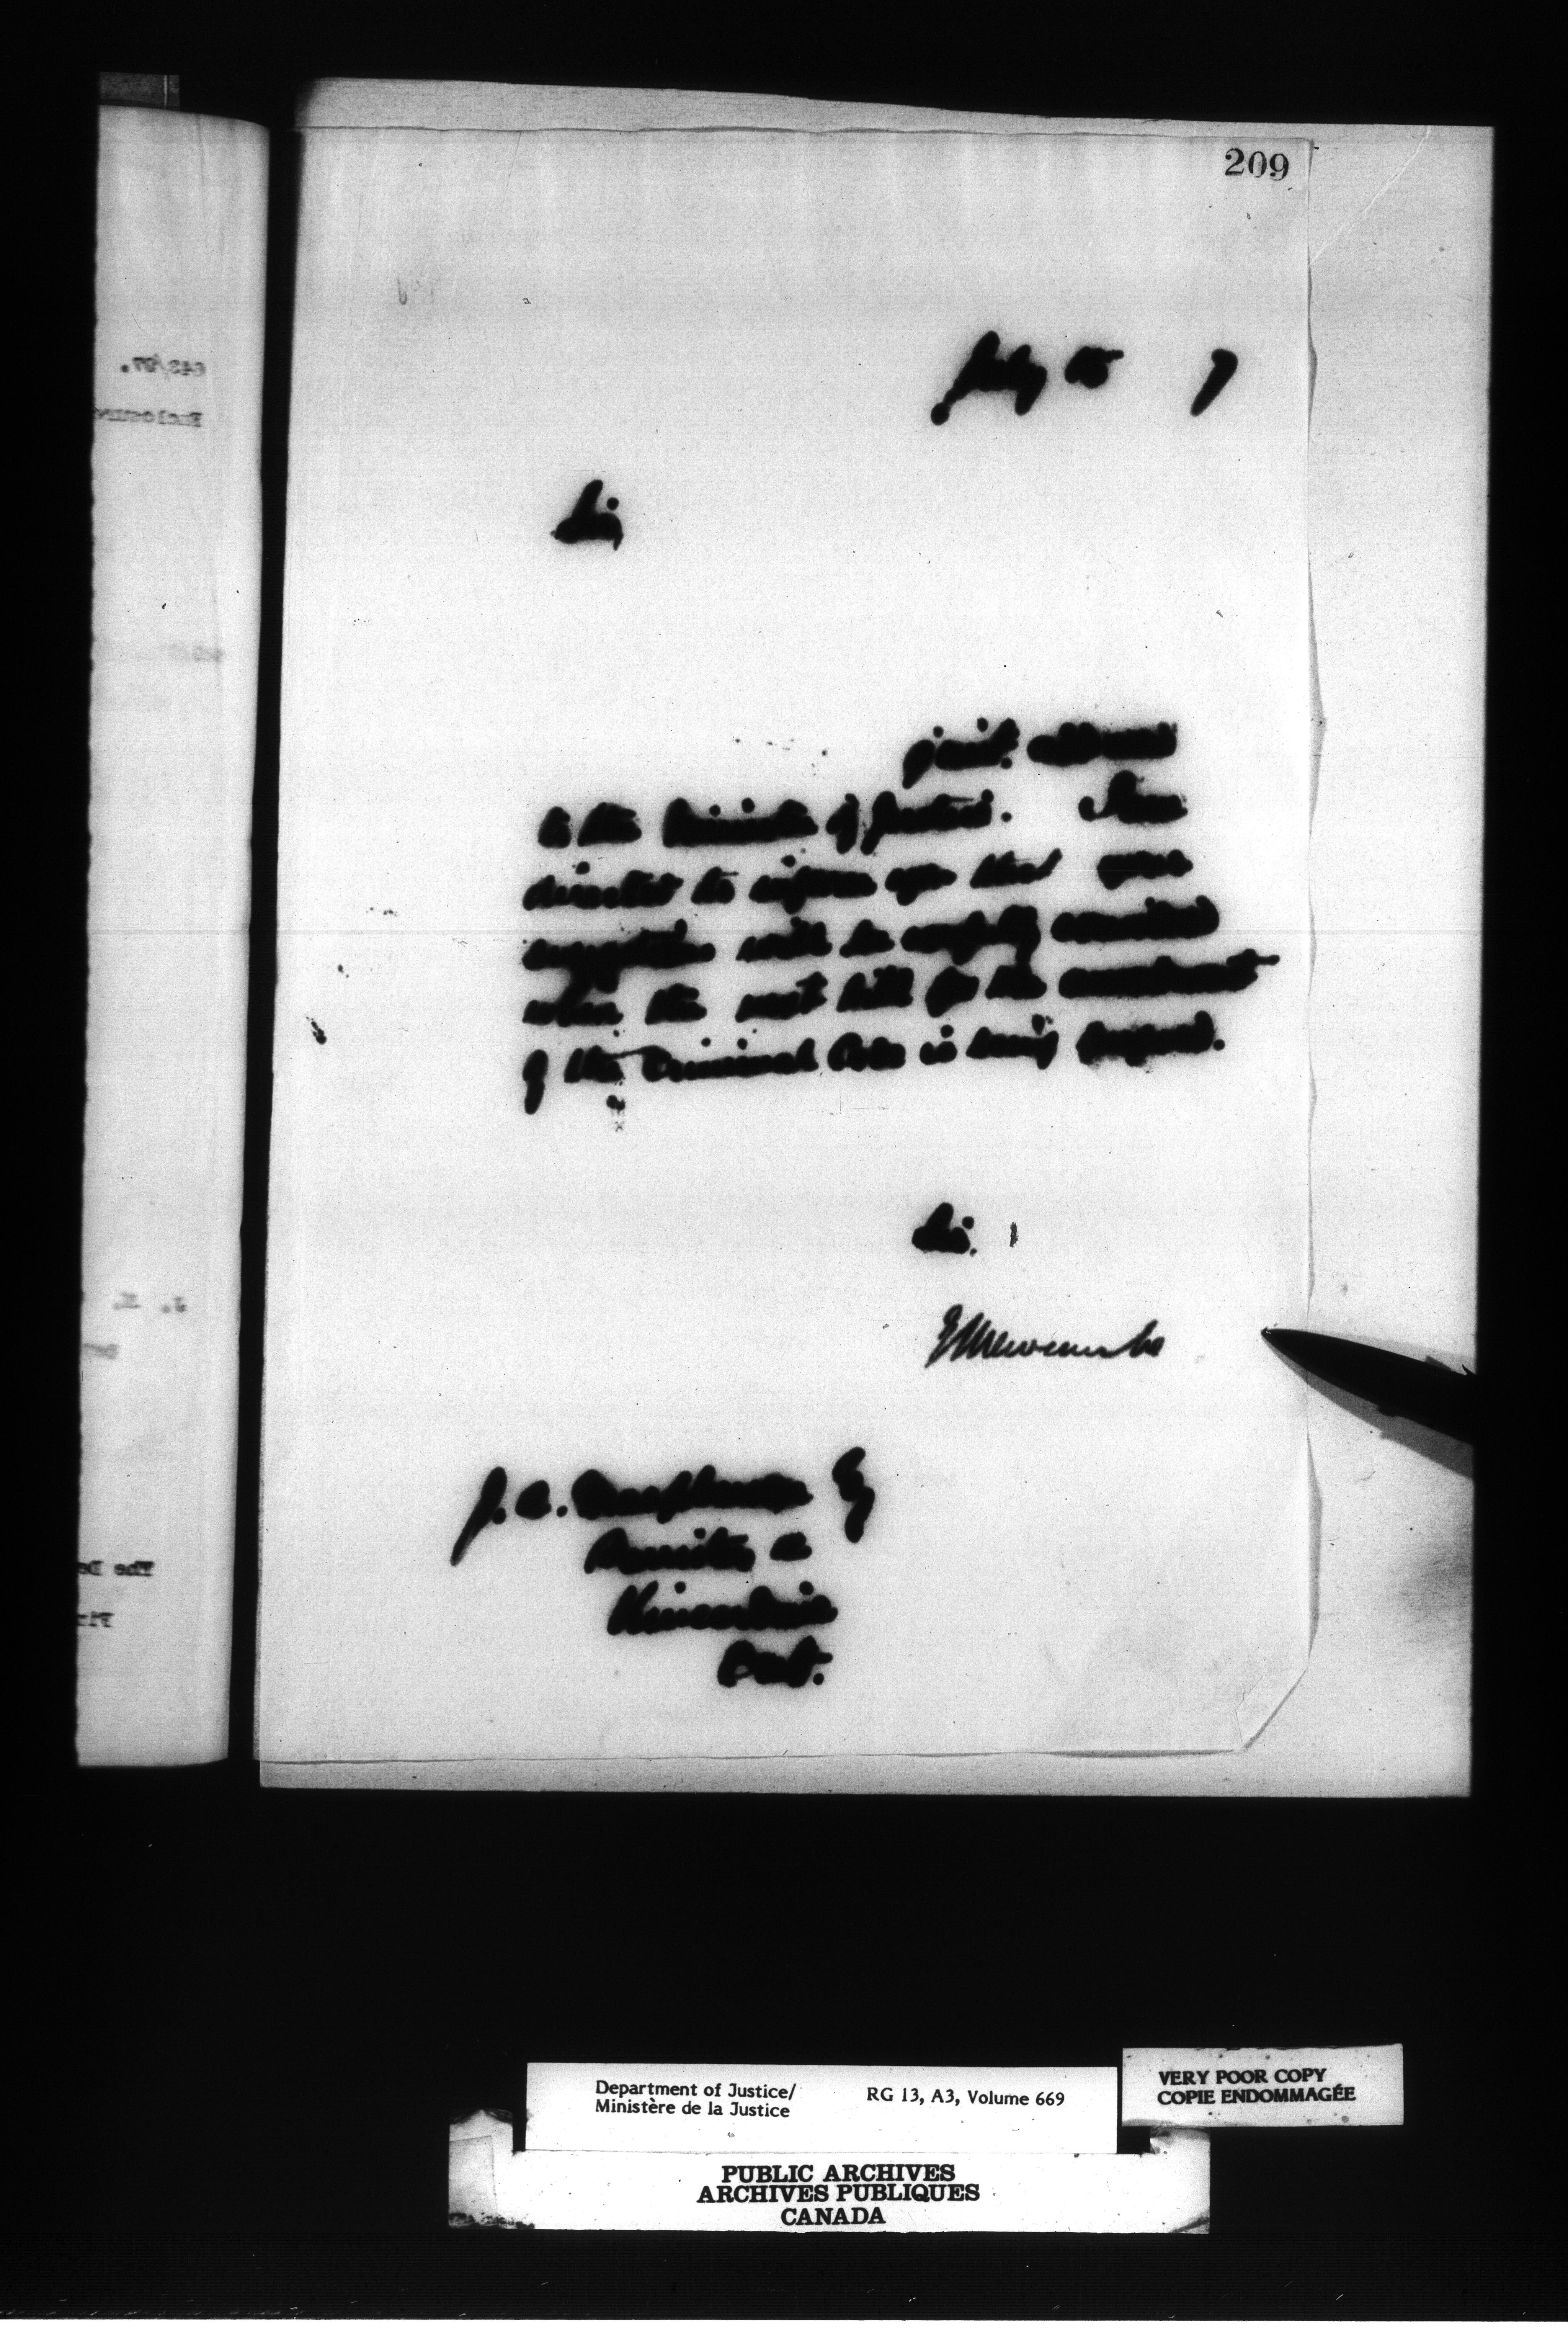 209
July 15 7
Sir,
inst. addressed
to the Minister of Justice. I am
directed to inform you that your
suggestion will be carefully considered
when the next bill for the amendment
of the Criminal Code is being prepared.
Sir,
E L Newcombe
J. A. Esq
Barrister &c
Kincardine
Ont.
Department of Justice/
Ministère de la Justice
RG 13, A3, Volume 669
VERY POOR COPY
COPIE ENDOMMAGÉE
PUBLIC ARCHIVES
ARCHIVES PUBLIQUES
CANADA